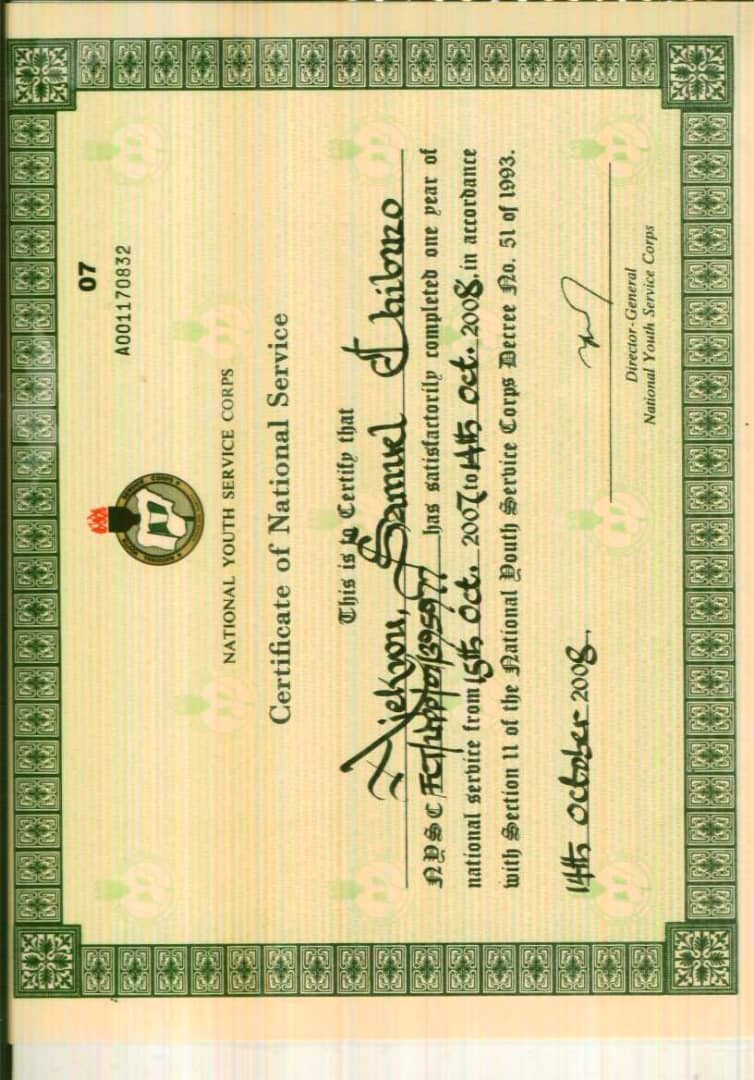 07
A001170832
NATIONAL YOUTH SERVICE CORPS
Certificate of National Service
This is to Certify that
Samuel
NYSC has satisfactorily completed one year of
national service from 15th Oct. 2007 to 14th Oct. 2008, in accordance
with Section 11 of the National Youth Service Corps Decree No. 51 of 1993.
14th October 2008
Director-General
National Youth Service Corps